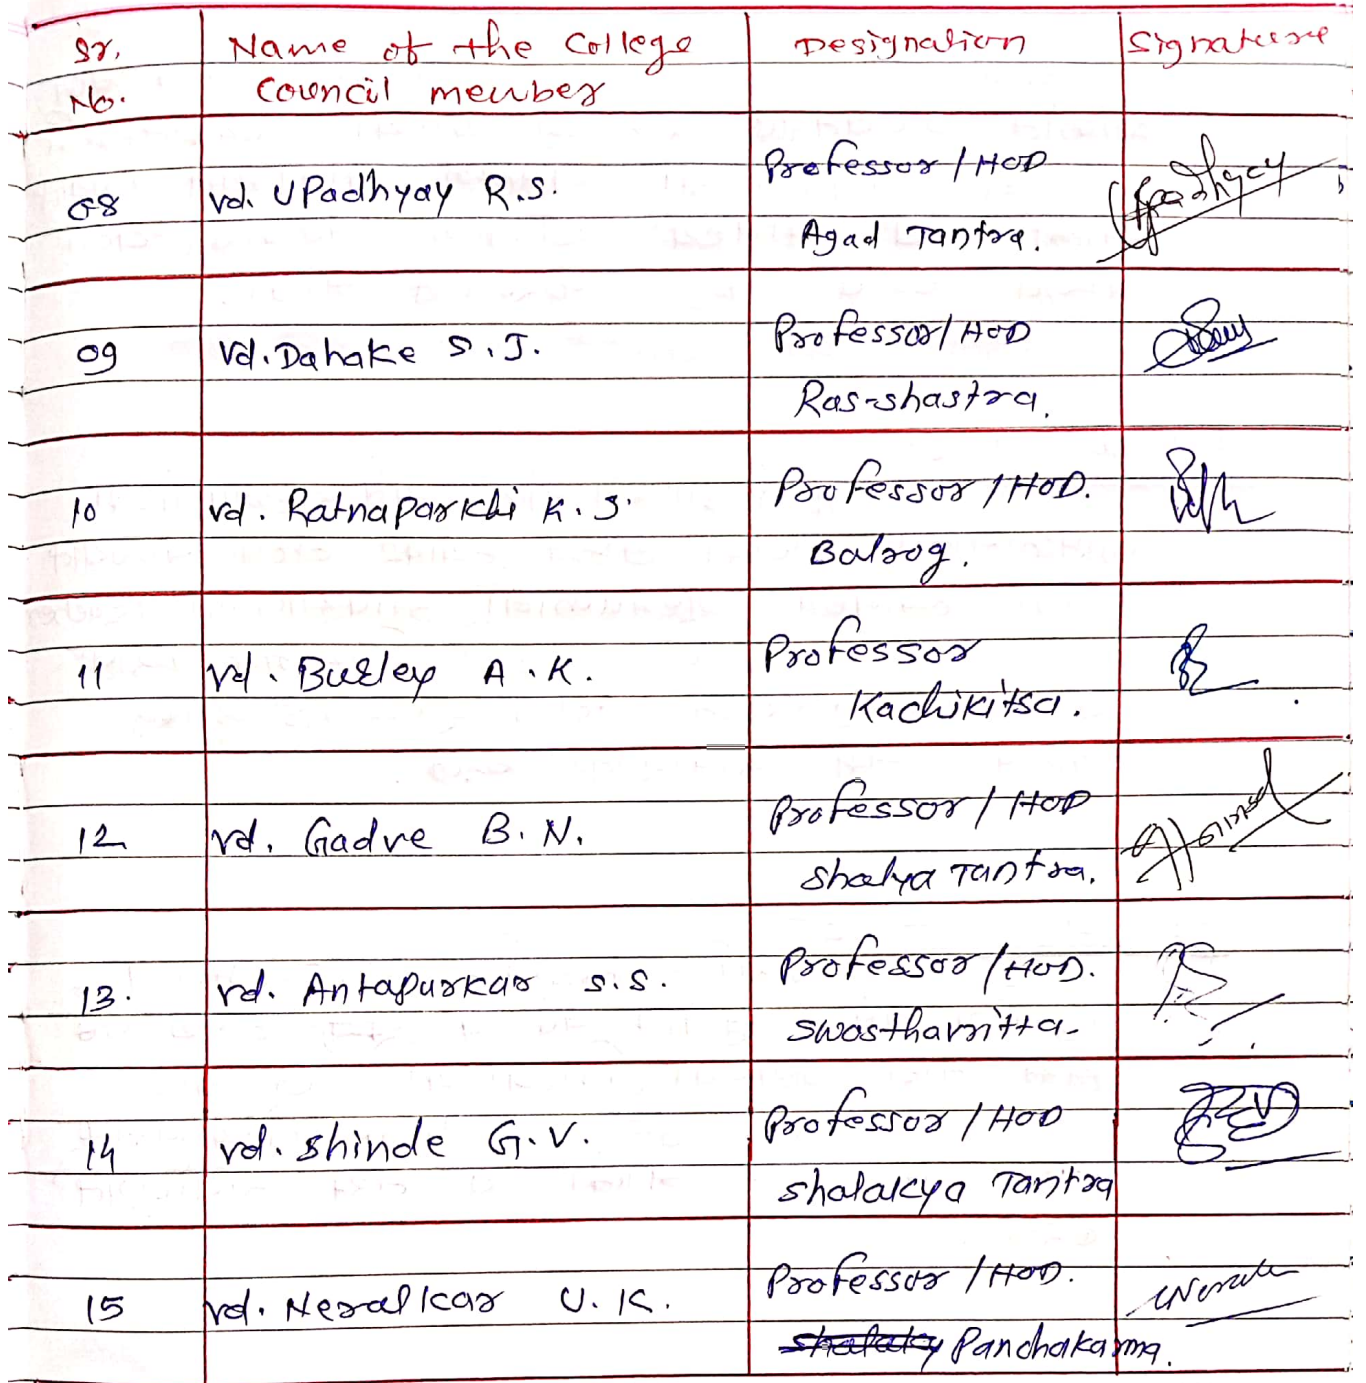 Sr. Name of the College Designation Signature
No. Council member
08 Vd. Upadhyay R.S. Professor / HOD Upadhyay
Agad Tantra.
09 Vd. Dahake S.J. Professor / HOD
Ras-shastra.
10 Vd. Ratnaparkhi K.J. Professor / HOD.
Balrog.
11 Vd. A.K. Professor
Kachikitsa.
12 Vd. Gadve B.N. Professor / HOD
Shalya Tantra.
13. Vd. Antapurkar S.S. Professor / HOD.
Swasthavritta.
14 Vd. Shinde G.V. Professor / HOD
Shalakya Tantra
15 Vd. Neralkar U.K. Professor / HOD.
Shalaky Panchakarma.